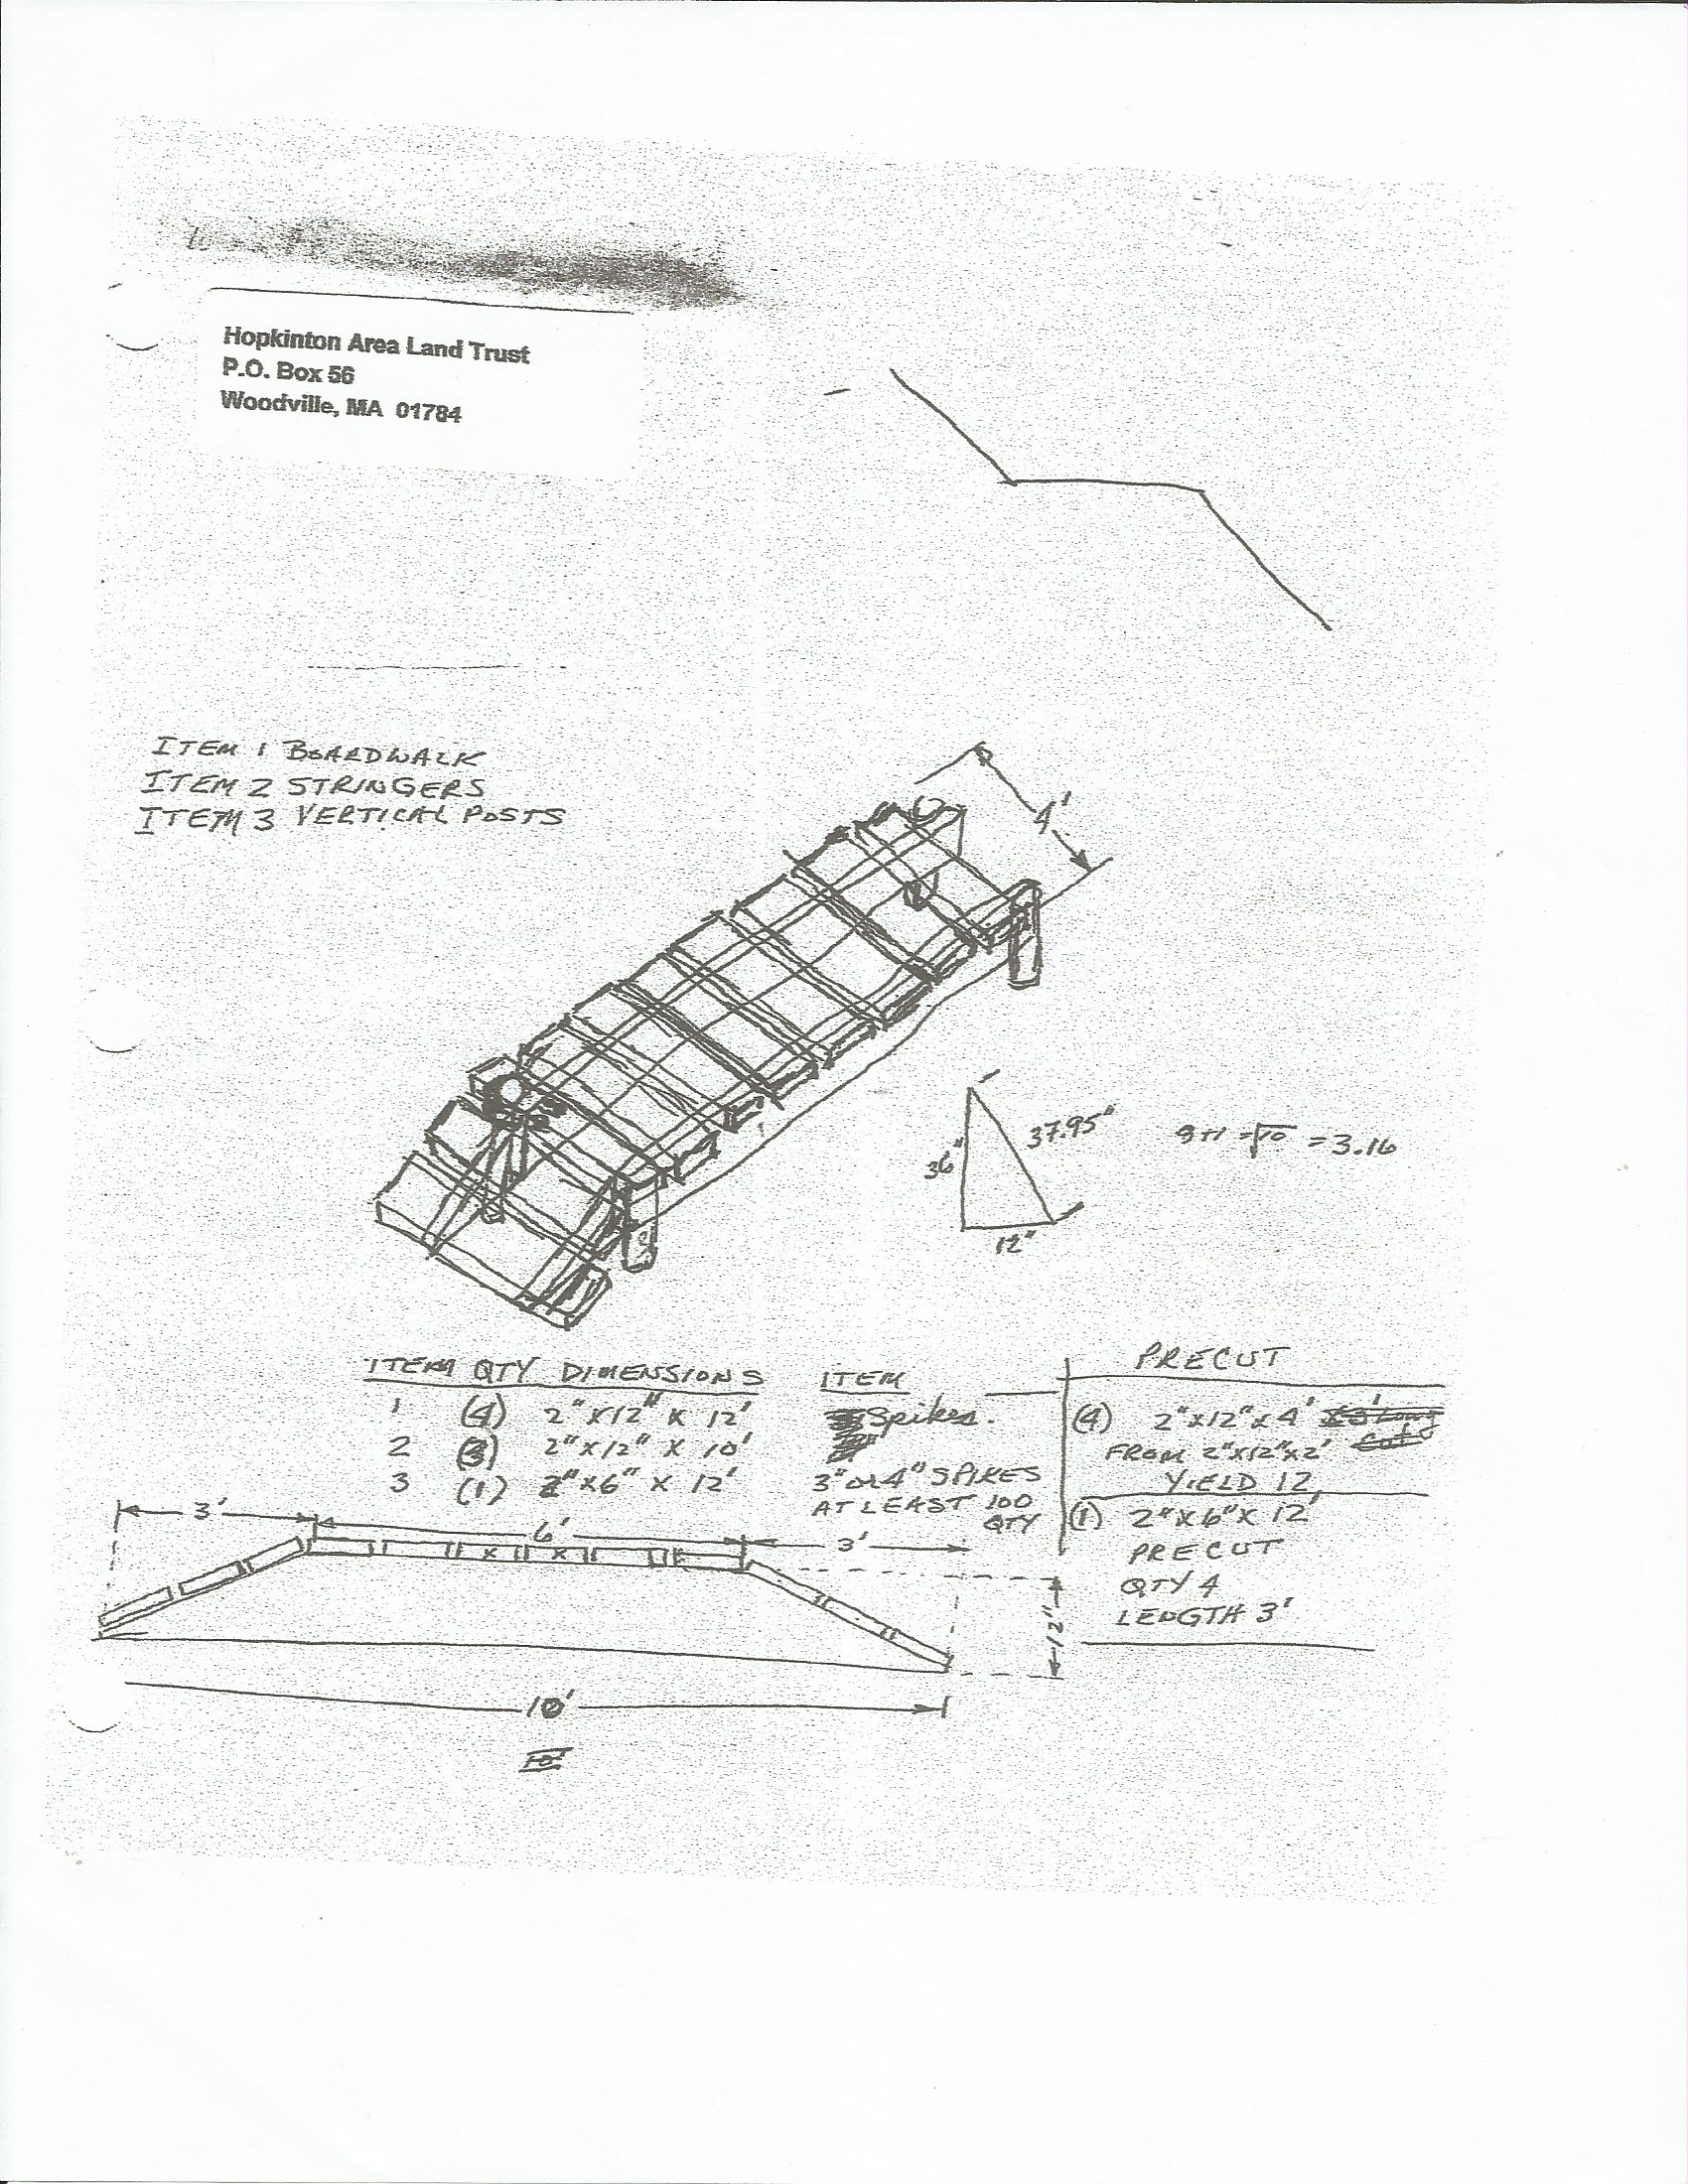 Hopkinton Area Land Trust
P.O. Box 56
Woodville, MA 01784
ITEM 1 BOARDWALK
ITEM 2 STRINGERS
ITEM 3 VERTICAL POSTS
4'
36"
37.95"
12"
9+1 = √10 = 3.16
ITEM QTY DIMENSIONS
1 (4) 2" x 12" x 12'
2 (3) 2" x 12" x 10'
3 (1) 2" x 6" x 12'
ITEM
Spikes.
3" or 4" SPIKES
AT LEAST 100
QTY
PRECUT
(4) 2" x 12" x 4'
FROM 2" x 12" x 2'
YIELD 12
(1) 2" x 6" x 12'
PRECUT
QTY 4
LENGTH 3'
3'
6'
3'
12"
10'